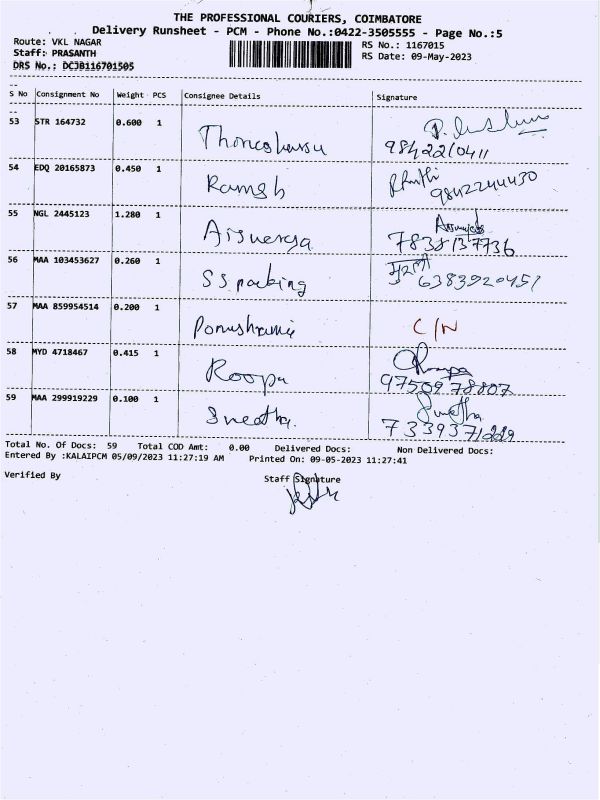 THE PROFESSIONAL COURIERS, COIMBATORE
Delivery Runsheet - PCM - Phone No.:0422-3505555 - Page No.:5
Route: VKL NAGAR
RS No.: 1167015
Staff: PRASANTH
RS Date: 09-May-2023
DRS No.: DCJB116701505
S No Consignment No Weight PCS Consignee Details Signature
53 STR 164732 0.600 1
9842210411
54 EDQ 20165873 0.450 1 Ramesh
9842244430
55 NGL 2445123 1.280 1
7838137736
56 MAA 103453627 0.260 1 S S packing
6383920451
57 MAA 859954514 0.200 1 C/N
58 MYD 4718467 0.415 1 Roopa Roopa
9750978807
59 MAA 299919229 0.100 1 Sneatha. Sneatha
7339371229
Total No. Of Docs: 59 Total COD Amt: 0.00 Delivered Docs: Non Delivered Docs:
Entered By :KALAIPCM 05/09/2023 11:27:19 AM Printed On: 09-05-2023 11:27:41
Verified By Staff Signature